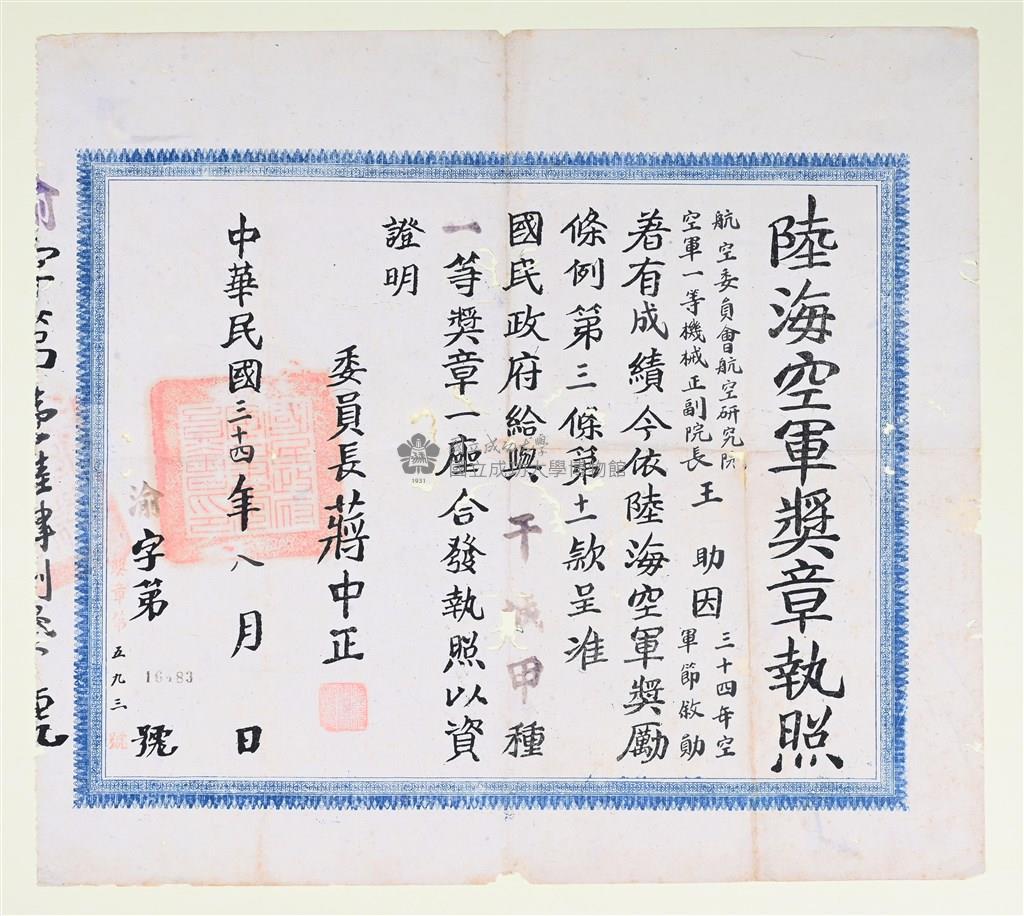 陸海空軍獎章執照
航空委員會航空研究院
空軍一等機械正副院長王助因三十四年空
軍節敘勛
著有成績今依陸海空軍獎勵
條例第三條第十一款呈准
國民政府給與干城甲種
一等獎章一座合發執照以資
證明
委員長蔣中正
中華民國三十四年八月日
渝字第16483號
獎章第五九三號
渝字第
國立成功大學博物館
1931